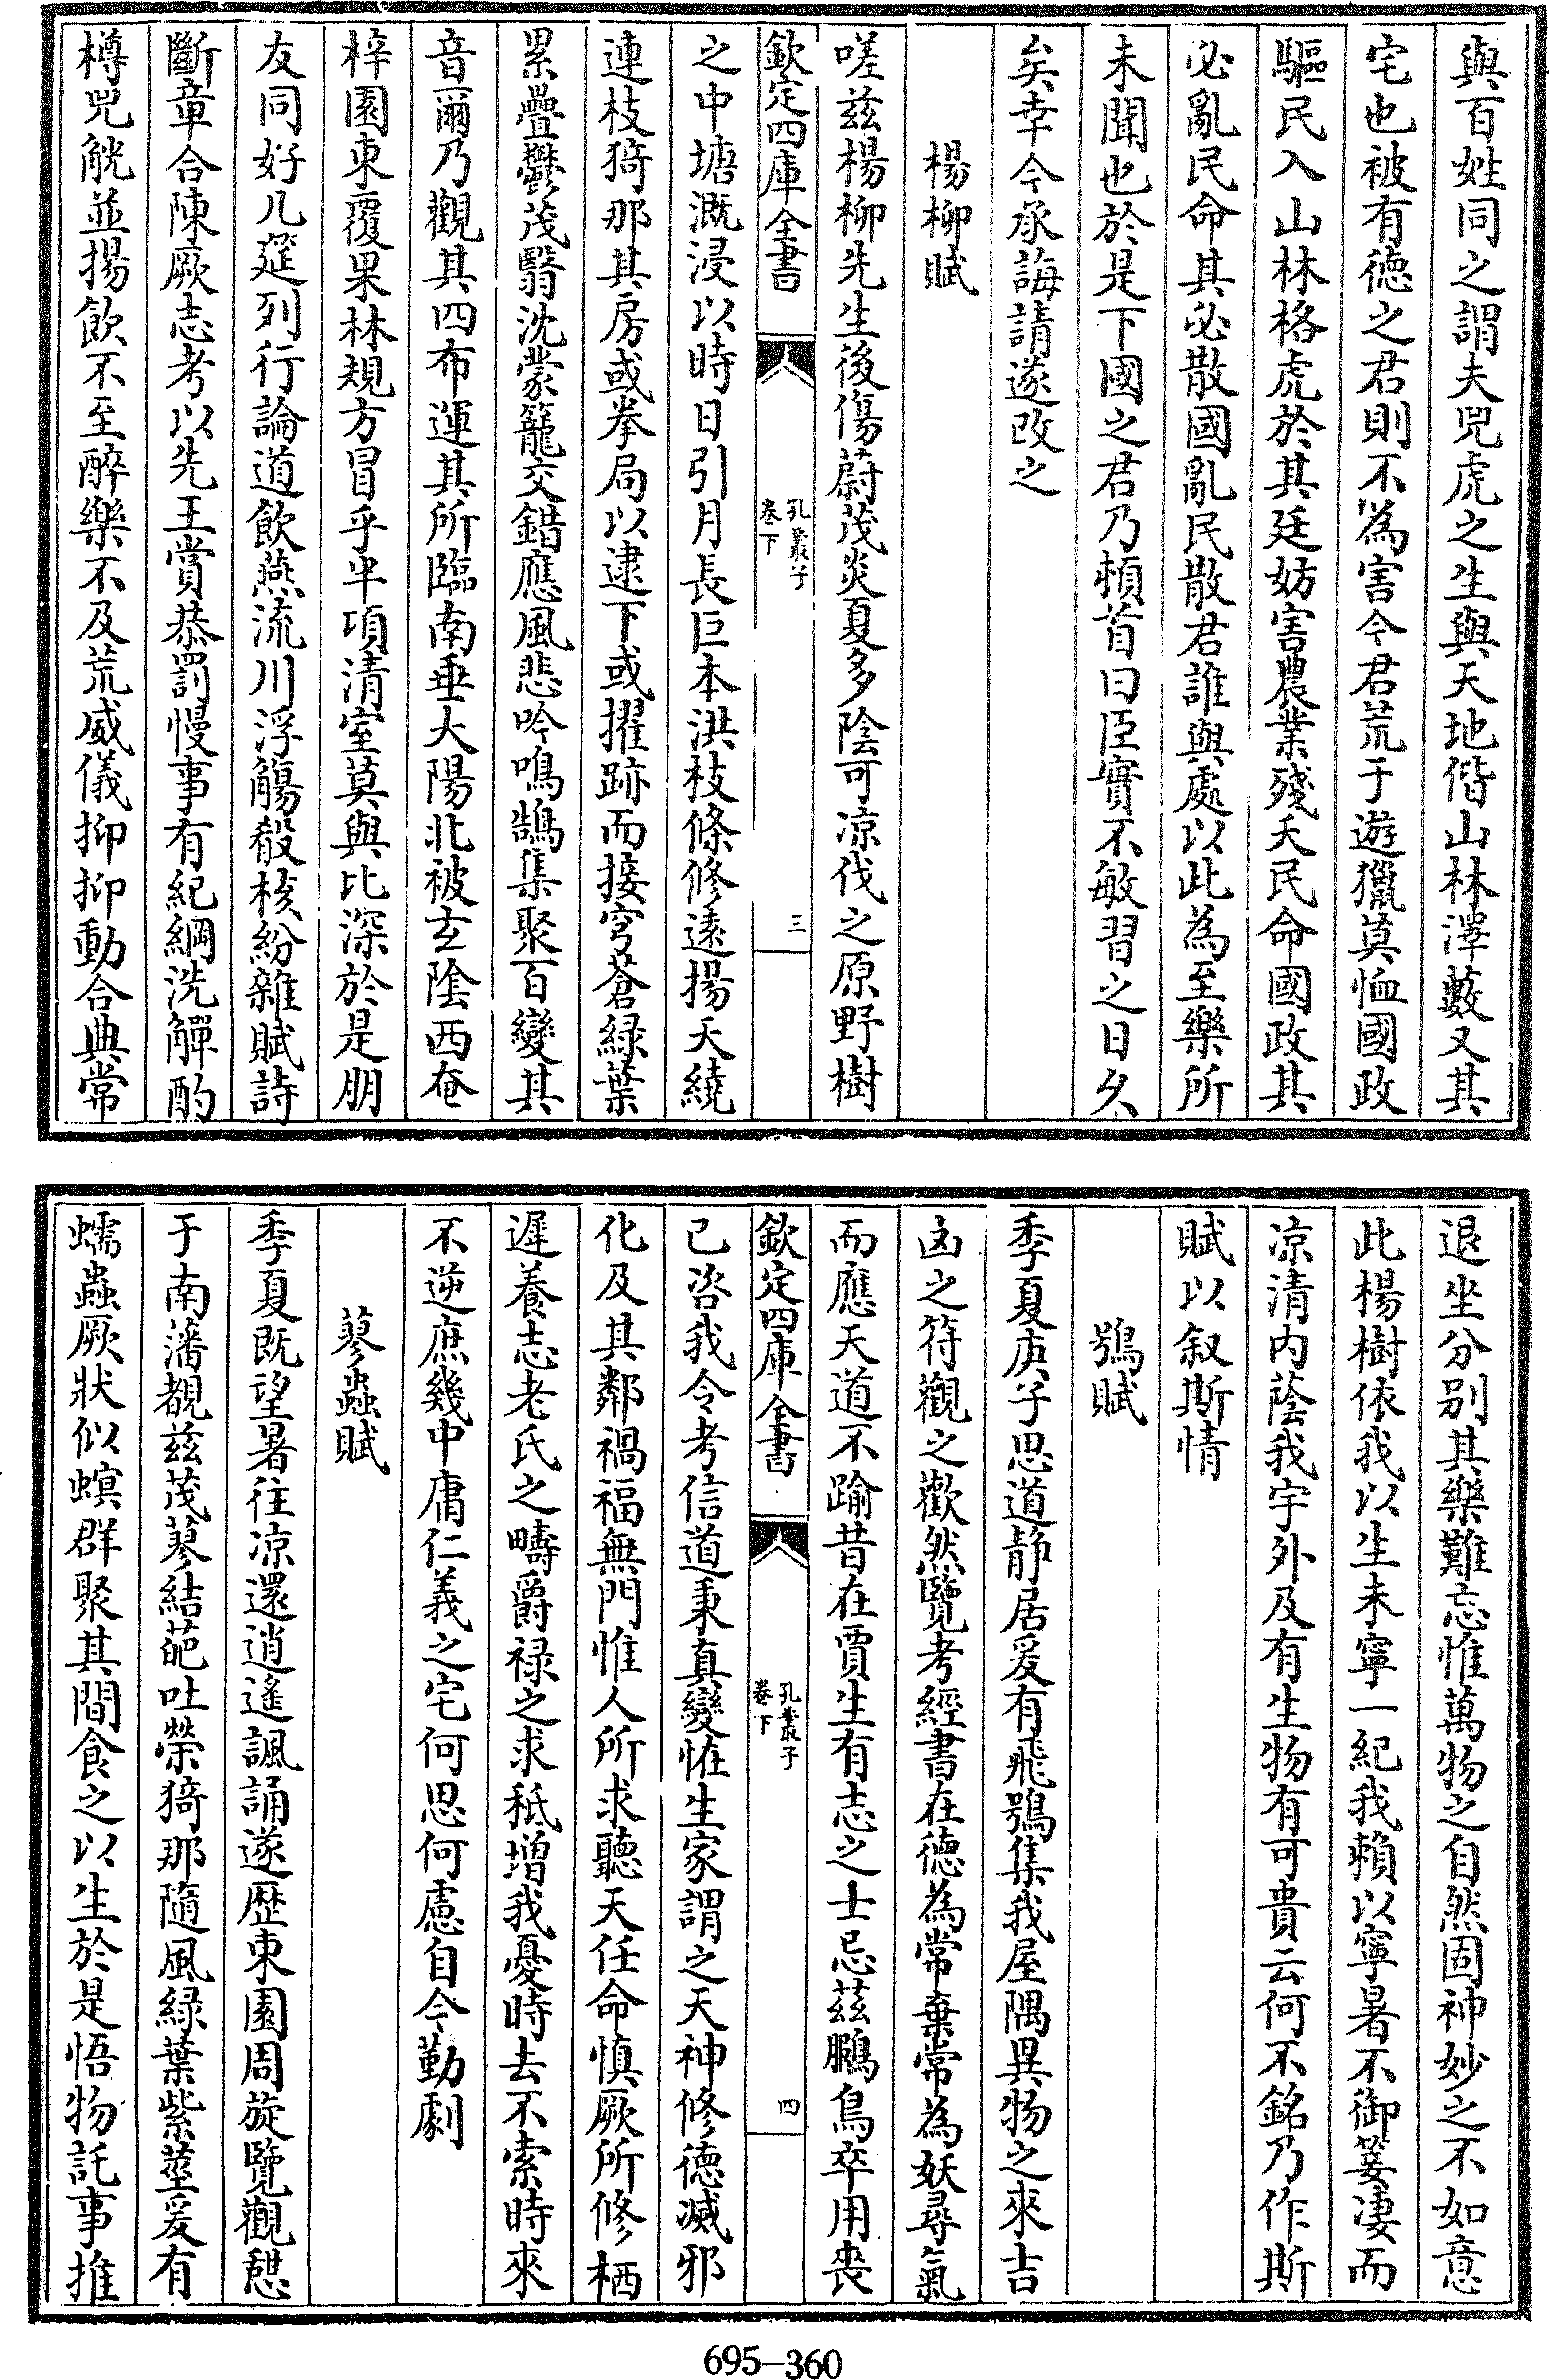 與百姓同之謂夫兕虎之生與天地偕山林澤藪又其
宅也被有德之君則不為害今君荒于遊獵莫恤國政
驅民入山林格虎於其廷妨害農業殘夭民命國政其
必亂民命其必散國亂民散君誰與處以此為至樂所
未聞也於是下國之君乃頓首曰臣實不敏習之日久
矣幸今承誨請遂改之
楊柳賦
嗟茲楊柳先生後傷蔚茂炎夏多陰可涼伐之原野樹
欽定四庫全書
孔叢子
卷下
三
之中塘溉浸以時日引月長巨本洪枝條修遠揚夭繞
連枝猗那其房或拳局以逮下或擢跡而接穹蒼綠葉
累疊鬱茂翳沈蒙籠交錯應風悲吟鳴鵠集聚百變其
音爾乃觀其四布運其所臨南垂大陽北被玄陰西奄
梓園東覆果林規方冒乎半項清室莫與比深於是朋
友同好几筵列行論道飲燕流川浮觴殽核紛雜賦詩
斷章合陳厥志考以先王賞恭罰慢事有紀綱洗觶酌
樽兕觥並揚飲不至醉樂不及荒威儀抑抑動合典常
退坐分別其樂難忘惟萬物之自然固神妙之不如意
此楊樹依我以生未寧一紀我賴以寧暑不御箑凄而
涼清內蔭我宇外及有生物有可貴云何不銘乃作斯
賦以叙斯情
鴞賦
季夏庚子思道靜居爰有飛鴞集我屋隅異物之來吉
凶之符觀之歡然覽考經書在德為常棄常為妖尋氣
而應天道不踰昔在賈生有志之士忌茲鵩鳥卒用喪
欽定四庫全書
孔叢子
卷下
四
已咨我令考信道秉真變恠生家謂之天神修德滅邪
化及其鄰禍福無門惟人所求聽天任命慎厥所修栖
遲養志老氏之疇爵祿之求秪增我憂時去不索時來
不逆庶幾中庸仁義之宅何思何慮自令勤劇
蓼蟲賦
季夏既望暑往涼還逍遙諷誦遂歷東園周旋覽觀憩
于南藩覩茲茂蓼結葩吐榮猗那隨風綠葉紫莖爰有
蠕蟲厥狀似螟群聚其間食之以生於是悟物託事推
695-360